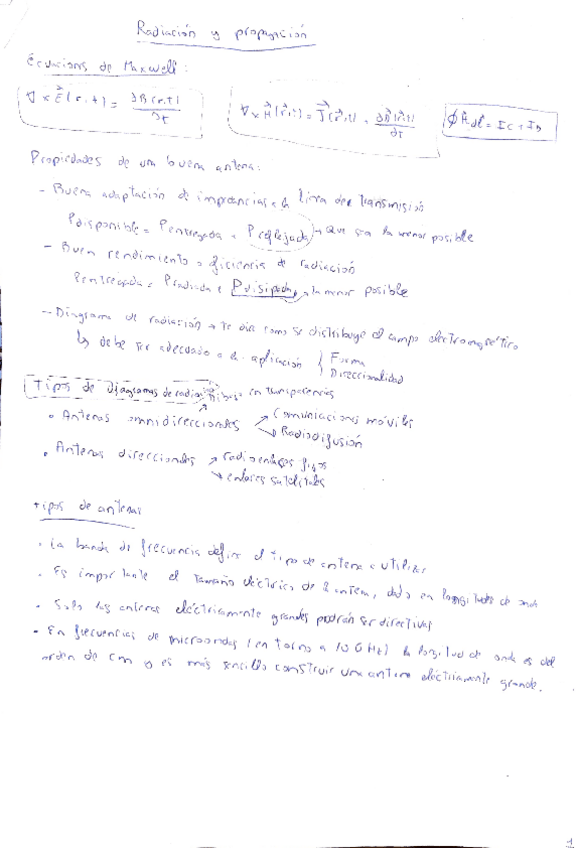 Radiación y propagación
Ecuacions de Maxwell:
∇ x E(r,t) = ∂B(r,t)/∂t   ∇ x H(r,t) = J(r,t) + ∂D(r,t)/∂t   ∮ H dl = Ic + ID
Propiedades de una buena antena:
- Buena adaptación de impedancias a la línea de transmisión
Pdisponible = Pentregada + Preflejada → que sea la menor posible
- Buen rendimiento o eficiencia de radiación
Pentregada = Pradiada + Pdisipada → la menor posible
- Diagrama de radiación → te dia como se distribuye el campo electromagnético
↳ debe ser adecuado a la aplicación { Forma
Direccionalidad
Tipos de diagramas de radiación en transparencias
• Antenas omnidireccionales → Comunicaciones móviles
→ Radiodifusión
• Antenas direccionales → radioenlaces fijos
→ enlaces satélitales
Tipos de antenas
• La banda de frecuencia define el tipo de antena a utilizar
• Es importante el tamaño eléctrico de la antena, dado en longitudes de onda
• Solo las antenas eléctricamente grandes podrán ser directivas
• En frecuencias de microondas (en torno a 10 GHz) la longitud de onda es del
orden de cm y es más sencillo construir una antena eléctricamente grande.
1